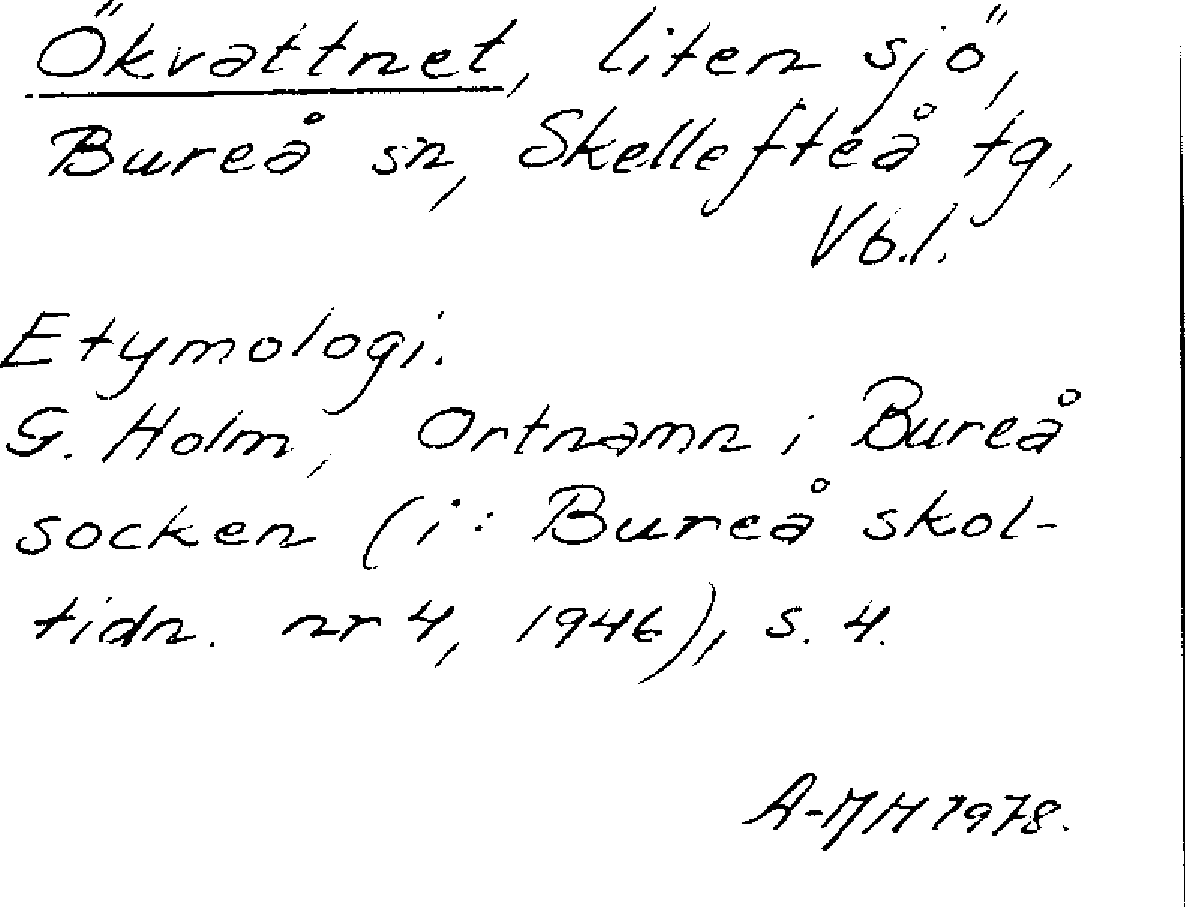 Ökvattnet, liten sjö,
Bureå sn, Skellefteå tg,
Vb.l.
Etymologi.
G. Holm, Ortnamn i Bureå
socken (i: Bureå skol-
tidn. nr 4, 1946), s. 4.
A-MH 1978.